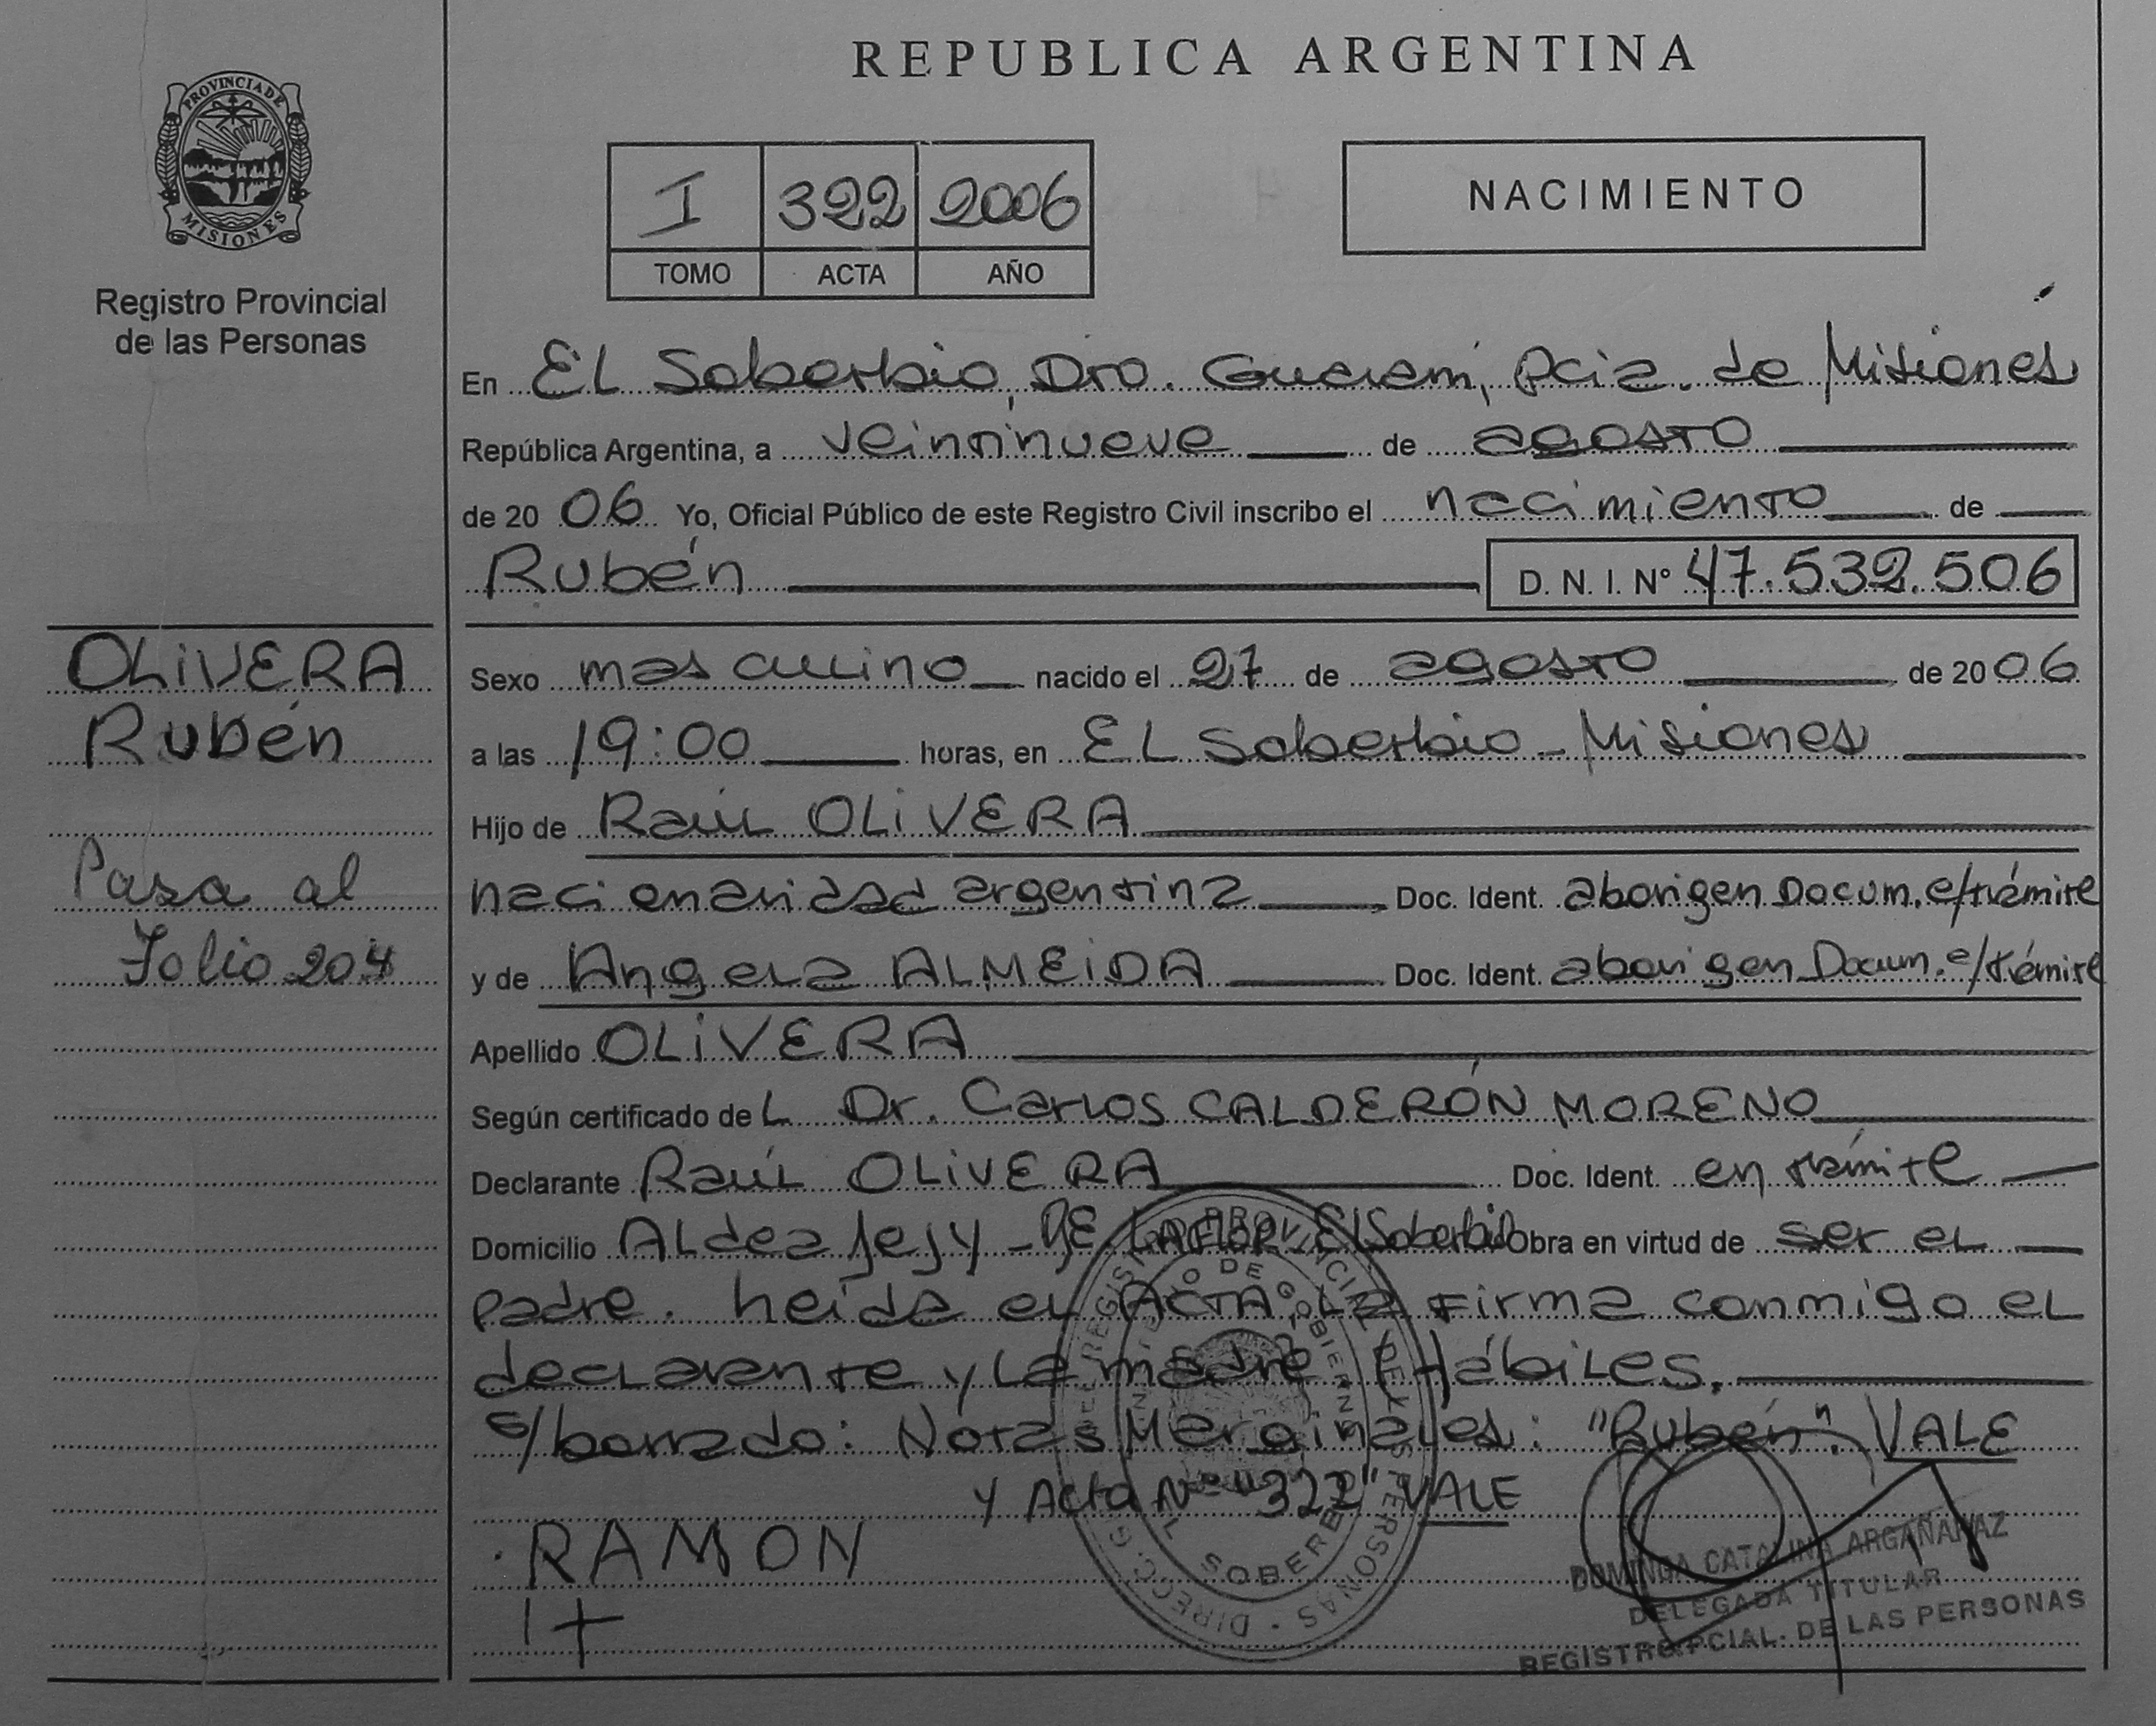 REPUBLICA ARGENTINA
PROVINCIA DE
MISIONES
Registro Provincial
de las Personas
I 322 2006
TOMO ACTA AÑO
NACIMIENTO
En El Soberbio, Dto. Guaraní, Pcia. de Misiones
República Argentina, a veintinueve de agosto
de 20 06 Yo, Oficial Público de este Registro Civil inscribo el nacimiento de
Rubén D. N. I. N° 47.532.506
OLIVERA
Rubén
Pasa al
Folio 204
Sexo masculino nacido el 27 de agosto de 20 06
a las 19:00 horas, en El Soberbio - Misiones
Hijo de Raúl OLIVERA
nacionalidad argentina Doc. Ident. aborigen Docum. e/trámite
y de Angela ALMEIDA Doc. Ident. aborigen Docum. e/trámite
Apellido OLIVERA
Según certificado del Dr. Carlos CALDERÓN MORENO
Declarante Raúl OLIVERA Doc. Ident. en trámite
Domicilio Aldea Jejy - LA FLOR - El Soberbio Obra en virtud de ser el
padre. Leída el ACTA, la firma conmigo el
declarante y la madre Hábiles.
s/borrado: Notas Marginales: "Rubén". VALE
y Acta N° "322" VALE
RAMON
DOMINGA CATALINA ARGAÑARAZ
DELEGADA TITULAR
REGISTRO PCIAL. DE LAS PERSONAS